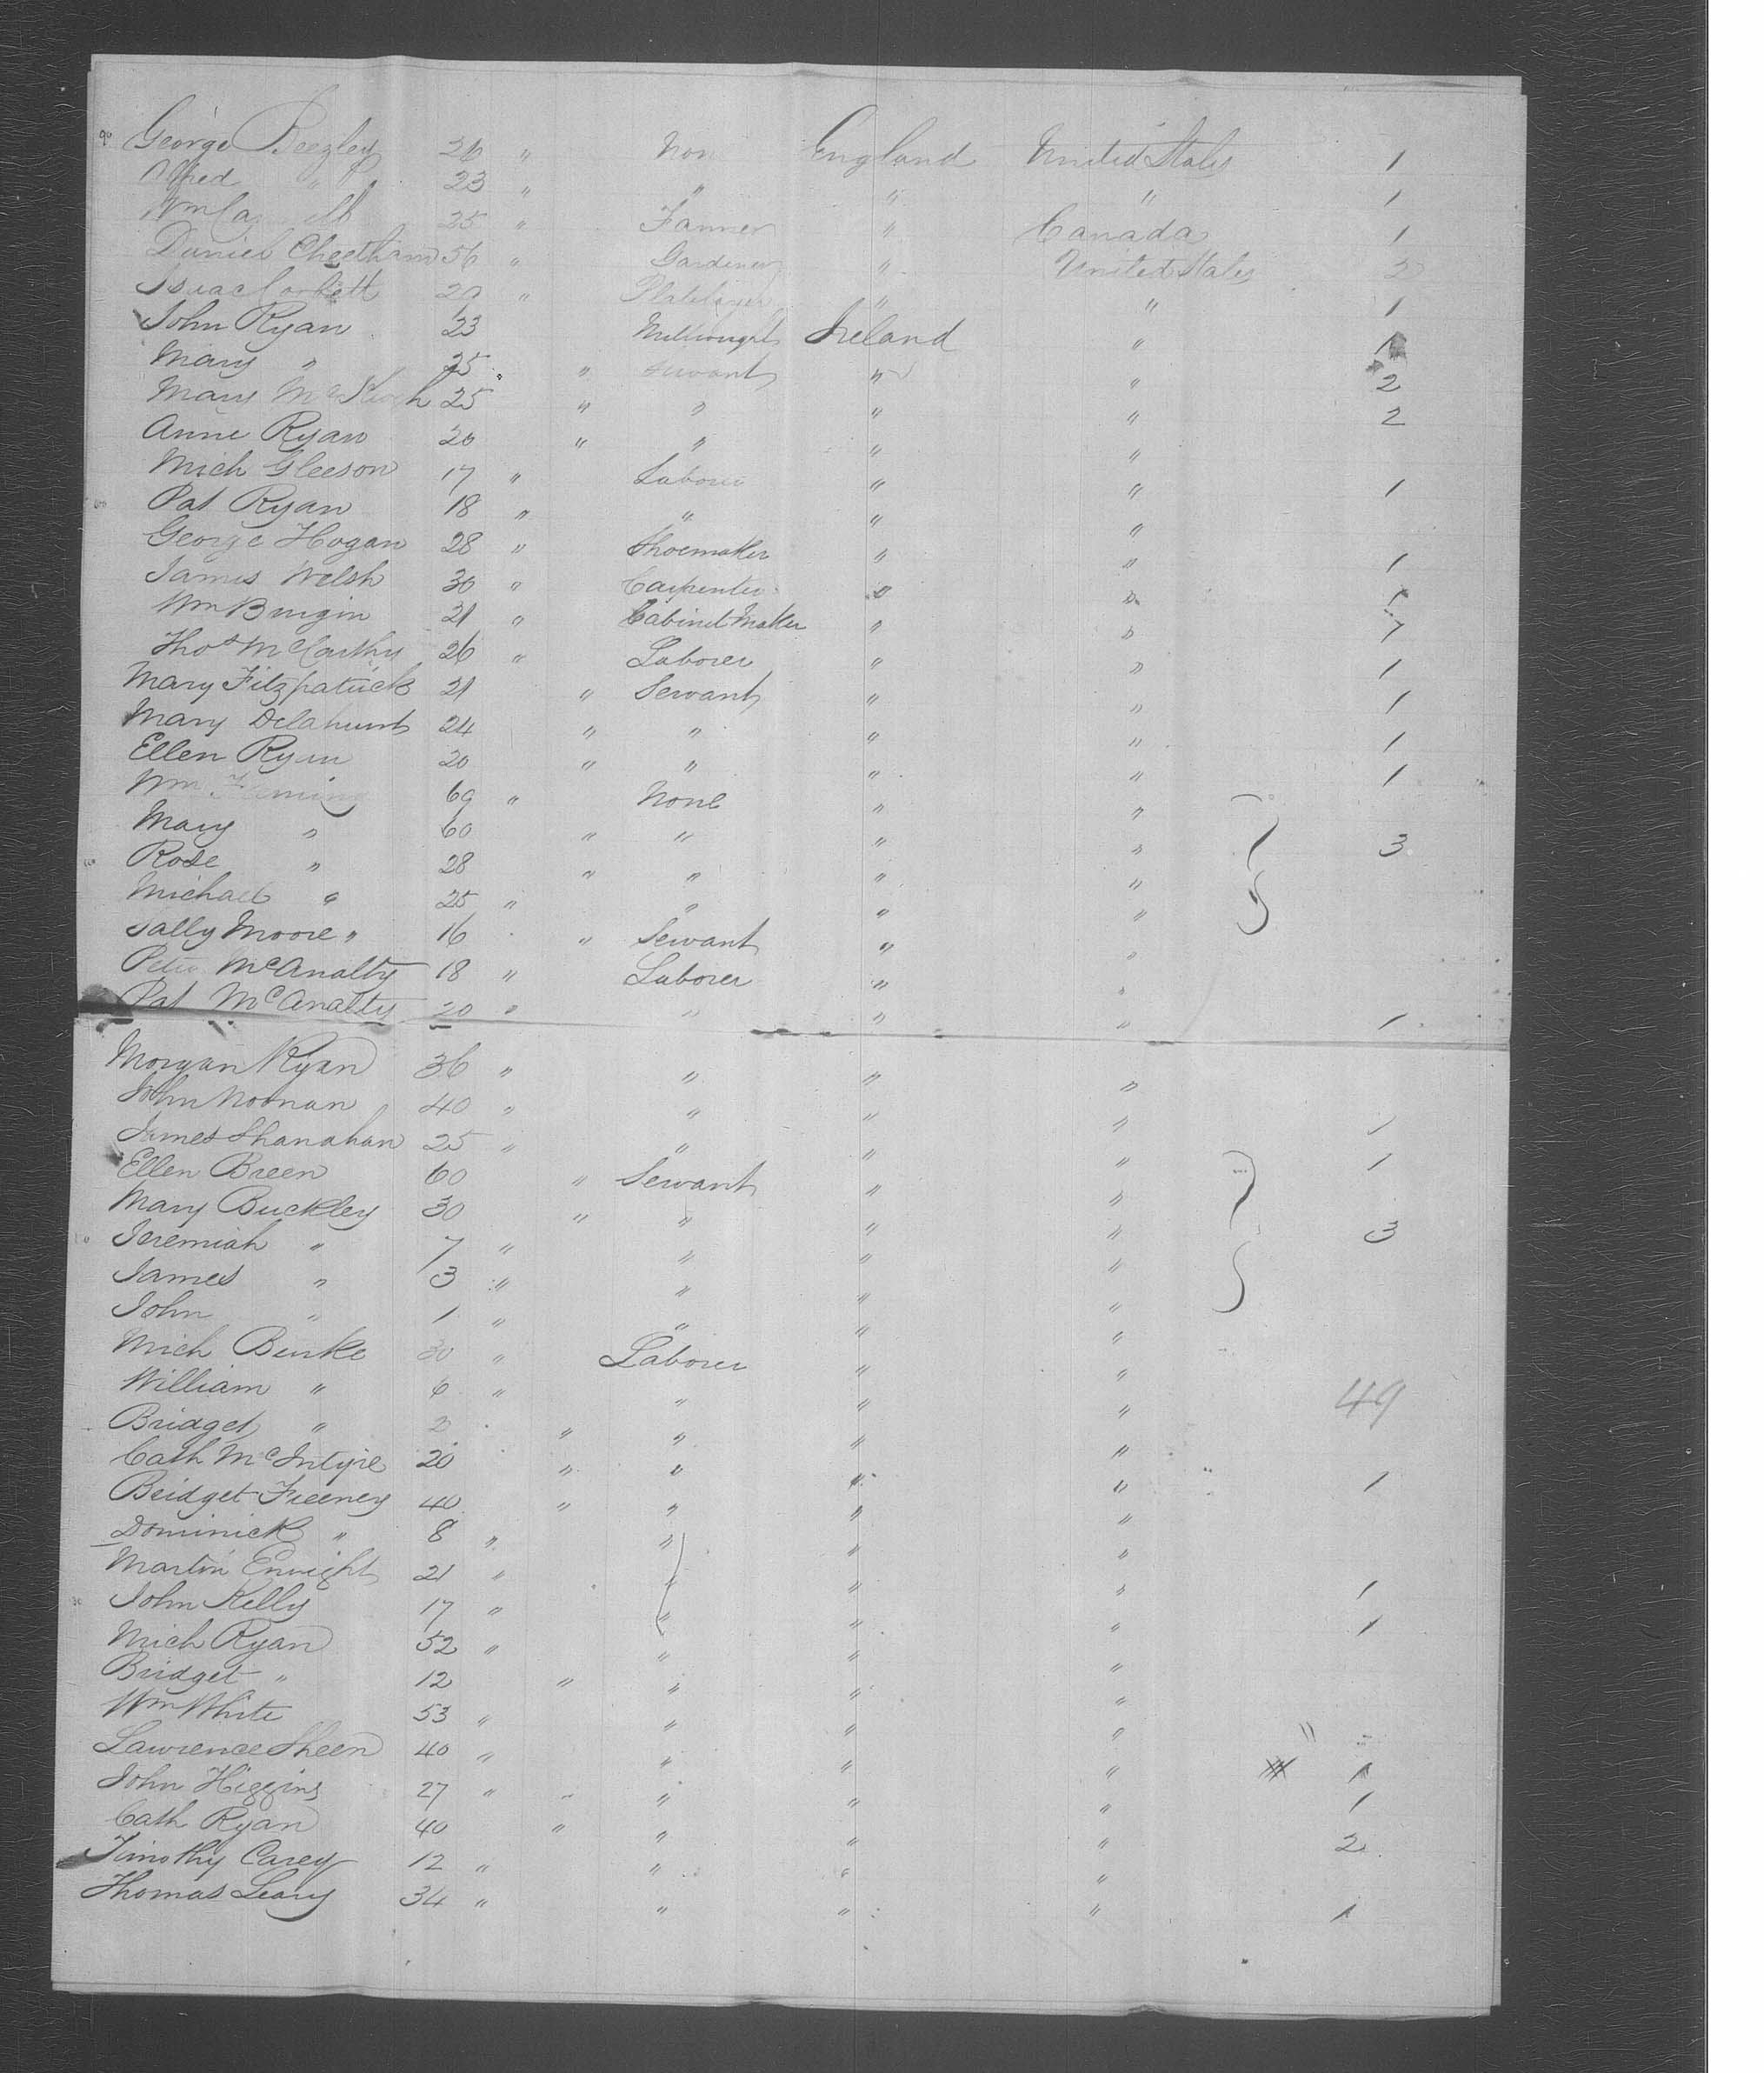 George Beezley 26 " Non England United States 1
Alfred " 23 " " " " 1
Wm 25 " Farmer " Canada 1
Daniel Cheetham 56 " Gardener " United States 2
Isaac Corbett 29 " Platelayer " " 1
John Ryan 23 Millwright Ireland " 1
Mary " 25 " Servant " " 2
Mary 25 " " " " 2
Anne Ryan 20 " " " "
Mich Gleeson 17 " Laborer " " 1
Pat Ryan 18 " " " "
George Hogan 28 " Shoemaker " " 1
James Welsh 30 " Carpenter " " 1
Wm Burgin 21 " Cabinet Maker " " 1
Thos McCarthy 26 " Laborer " " 1
Mary Fitzpatrick 21 " Servant " " 1
Mary Delahunt 24 " " " " 1
Ellen Ryan 20 " " " " 1
Wm Fleming 69 " None " "
Mary " 60 " " " " 3
Rose " 28 " " " "
Michael " 25 " " " "
Sally Moore " 16 " Servant " "
Peter McAnalty 18 " Laborer " "
Pat McAnalty 20 " " " " 1
Morgan Ryan 36 " " " "
John Noonan 40 " " " " 1
James Shanahan 25 " " " " 1
Ellen Breen 60 " Servant " "
Mary Buckley 30 " " " " 3
Jeremiah " 7 " " " "
James " 3 " " " "
John " 1 " " " "
Mich Burke 30 " Laborer " "
William " 6 " " " " 49
Bridget " 2 " " " "
Cath McIntyre 20 " " " " 1
Bridget Freeney 40 " " " "
Dominick " 8 " " " "
Martin Enright 21 " " " " 1
John Kelly 17 " " " " 1
Mich Ryan 52 " " " "
Bridget " 12 " " " "
Wm White 53 " " " "
Lawrence Sheen 40 " " " " 1
John Higgins 27 " " " " 1
Cath Ryan 40 " " " " 2
Timothy Carey 12 " " " "
Thomas Leary 34 " " " " 1